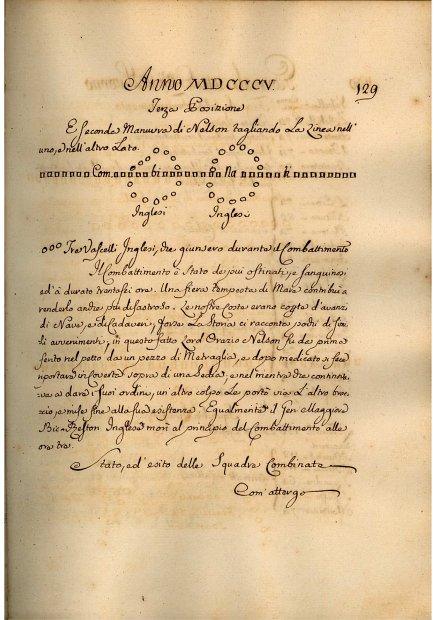 Anno MDCCCV.
129
Terza Posizione
E Seconda Manuvra di Nelson tagliando La Linea nell'
uno, e nell'altro Lato.
Com bi Na ti
Inglesi Inglesi
Tre Vascelli Inglesi, che giunsero durante il Combattimento
Il Combattimento è Stato de piu ostinati, e Sanguinosi
ed à durato trentasei ore. Una fiera tempesta di Mare contribuì a
renderlo anche piu disastroso. Le nostre Coste erano coperte d'avanzi
di Nave, e di Cadaveri, forse La Storia ci racconta pochi di Simili
avvenimenti, in questo fatto Lord Orazio Nelson fù da prima
ferito nel petto da un pezzo di Metraglia, e dopo medicato si fece
riportare in Coverta Sopra di una Sedia, e nel mentre che continua-
va a dare i Suoi ordini, un'altro colpo Le portò via L'altro brac-
cio, e mise fine alla sua esistenza. Egualmente il Gen. Maggiore
Inglese morì al principio del Combattimento alle
ore tre.
Stato, ed esito delle Squadre Combinate
Com' attergo